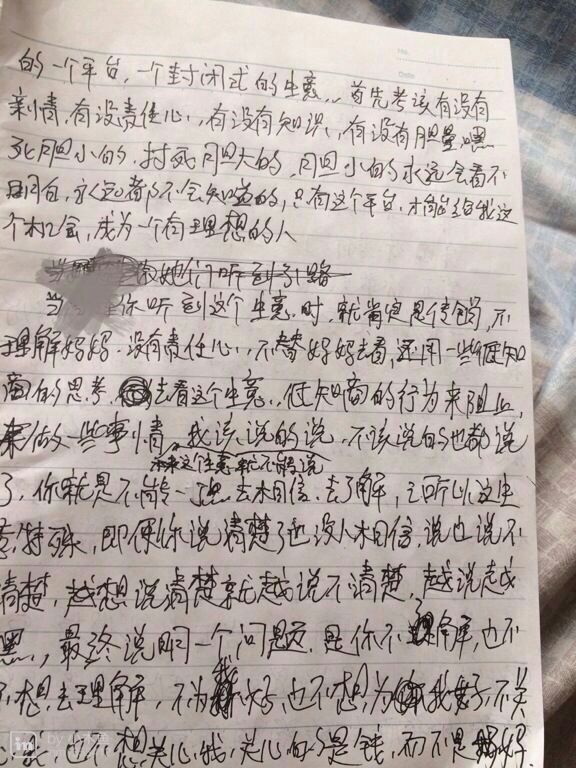 No.
Date
的一个平台,一个封闭式的生意,,首先考该有没有
亲情,有没责任心,有没有知识,有没有胆量,嘿
死胆小的,撑死胆大的,胆小的永远会看不
明白,永远都不会知道的,只有这个平台,才能给我这
个机会,成为一个有理想的人
她们听到了
你听到这个生意时,就肯定是传销,不
理解妈妈,没有责任心,不替妈妈去看,还用一些低知
商的思考,去看这个生意,低知商的行为来阻止,
来做一些事情,我该说的说,不该说的也都说
本来这个生意就不能说
了,你就是不能去相信,去了解,之所以这生
意特殊,即使你说清楚了也没人相信,说也说不
清楚,越想说清楚就越说不清楚,越说越
黑,最终说明一个问题,是你不理解,也不
想去理解,不为我好,也不想为我好,不关
心我,也不想关心我,关心的是钱,而不是妈妈.
in